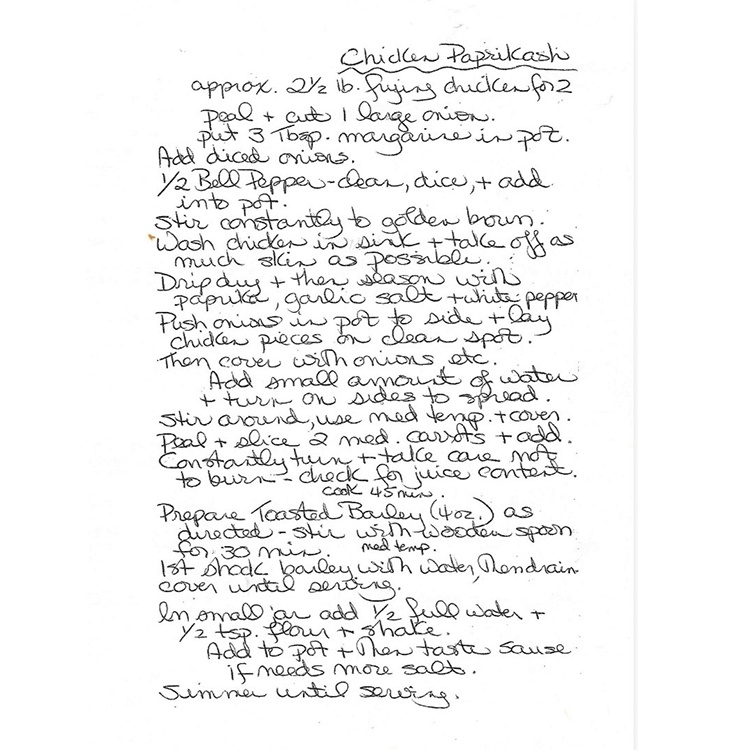 Chicken Paprikash
approx. 2½ lb. frying chicken for 2
Peal + cut 1 large onion.
put 3 Tbsp. margarine in pot.
Add diced onions.
1/2 Bell Pepper - clean, dice, + add
into pot.
Stir constantly to golden brown.
Wash chicken in sink + take off as
much skin as possible.
Drip dry + then season with
paprika, garlic salt + white pepper
Push onions in pot to side + lay
chicken pieces on clean spot.
Then cover with onions, etc.
Add small amount of water
+ turn on sides to spread.
Stir around, use med temp. + cover.
Peal + slice 2 med. carrots + add.
Constantly turn + take care not
to burn - check for juice content.
cook 45 min.
Prepare Toasted Barley (4oz.) as
directed - stir with wooden spoon
for 30 min. med temp.
1st shock barley with water, Then drain
cover until serving.
In small jar add 1/2 full water +
1/2 tsp. flour + shake.
Add to pot + Then taste sause
if needs more salt.
Simmer until serving.